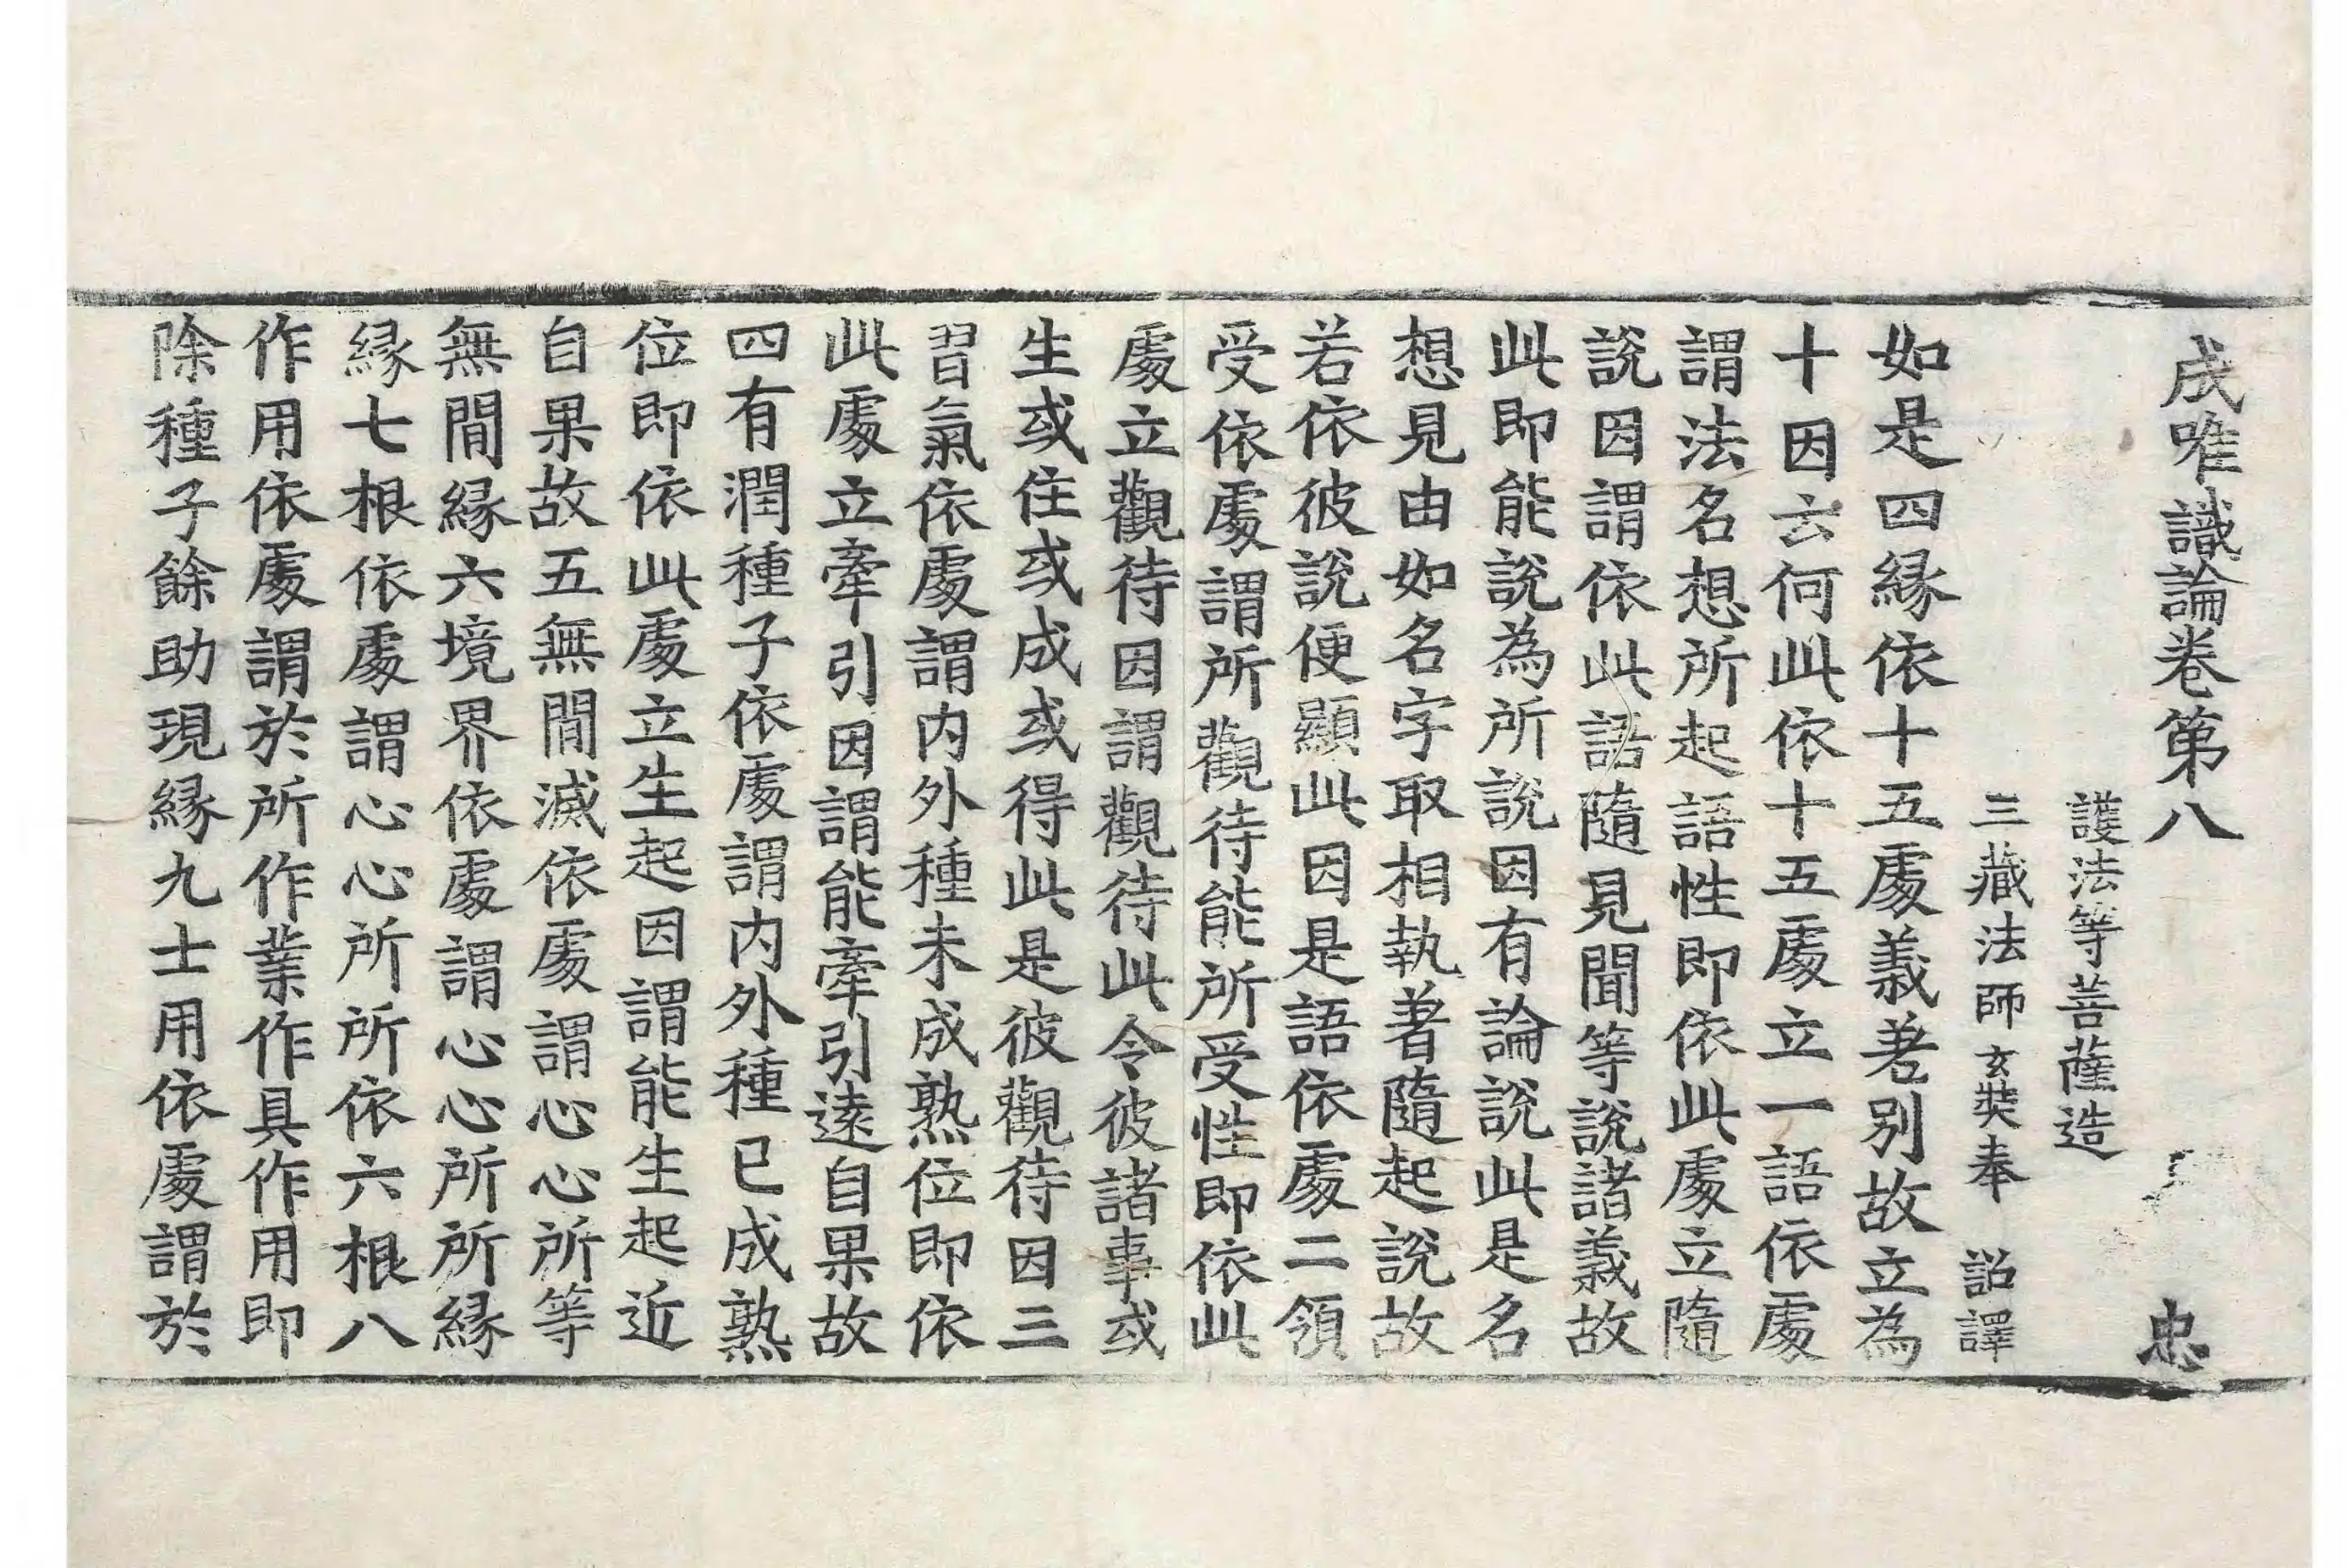 成唯識論卷第八　忠
護法等菩薩造
三藏法師玄奘奉　詔譯
如是四緣依十五處義差別故立為
十因云何此依十五處立一語依處
謂法名想所起語性即依此處立隨
說因謂依此語隨見聞等說諸義故
此即能說為所說因有論說此是名
想見由如名字取相執著隨起說故
若依彼說便顯此因是語依處二領
受依處謂所觀待能所受性即依此
處立觀待因謂觀待此令彼諸事或
生或住或成或得此是彼觀待因三
習氣依處謂内外種未成熟位即依
此處立牽引因謂能牽引遠自果故
四有潤種子依處謂内外種已成熟
位即依此處立生起因謂能生起近
自果故五無間滅依處謂心心所等
無間緣六境界依處謂心心所所緣
緣七根依處謂心心所所依六根八
作用依處謂於所作業作具作用即
除種子餘助現緣九士用依處謂於